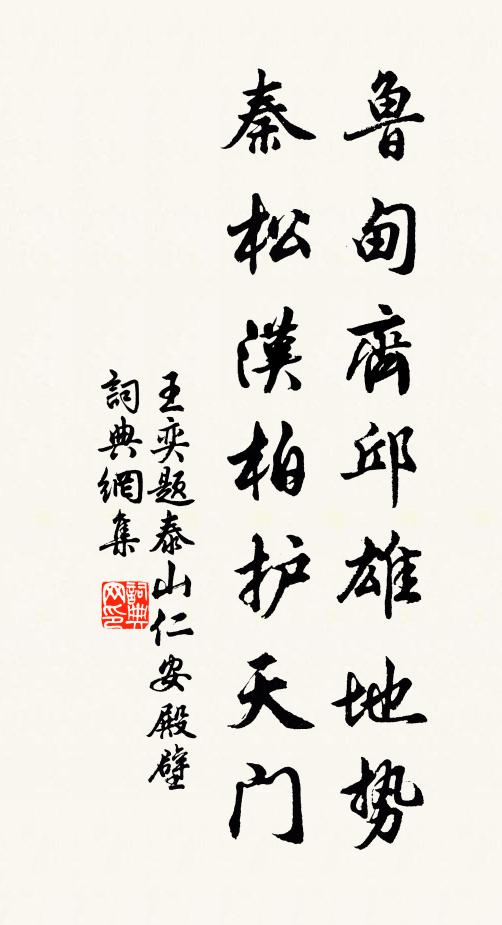 魯甸齊邱雄地势
秦松漢柏护天门
王奕题泰山仁安殿壁
詞典網集
詞典网印